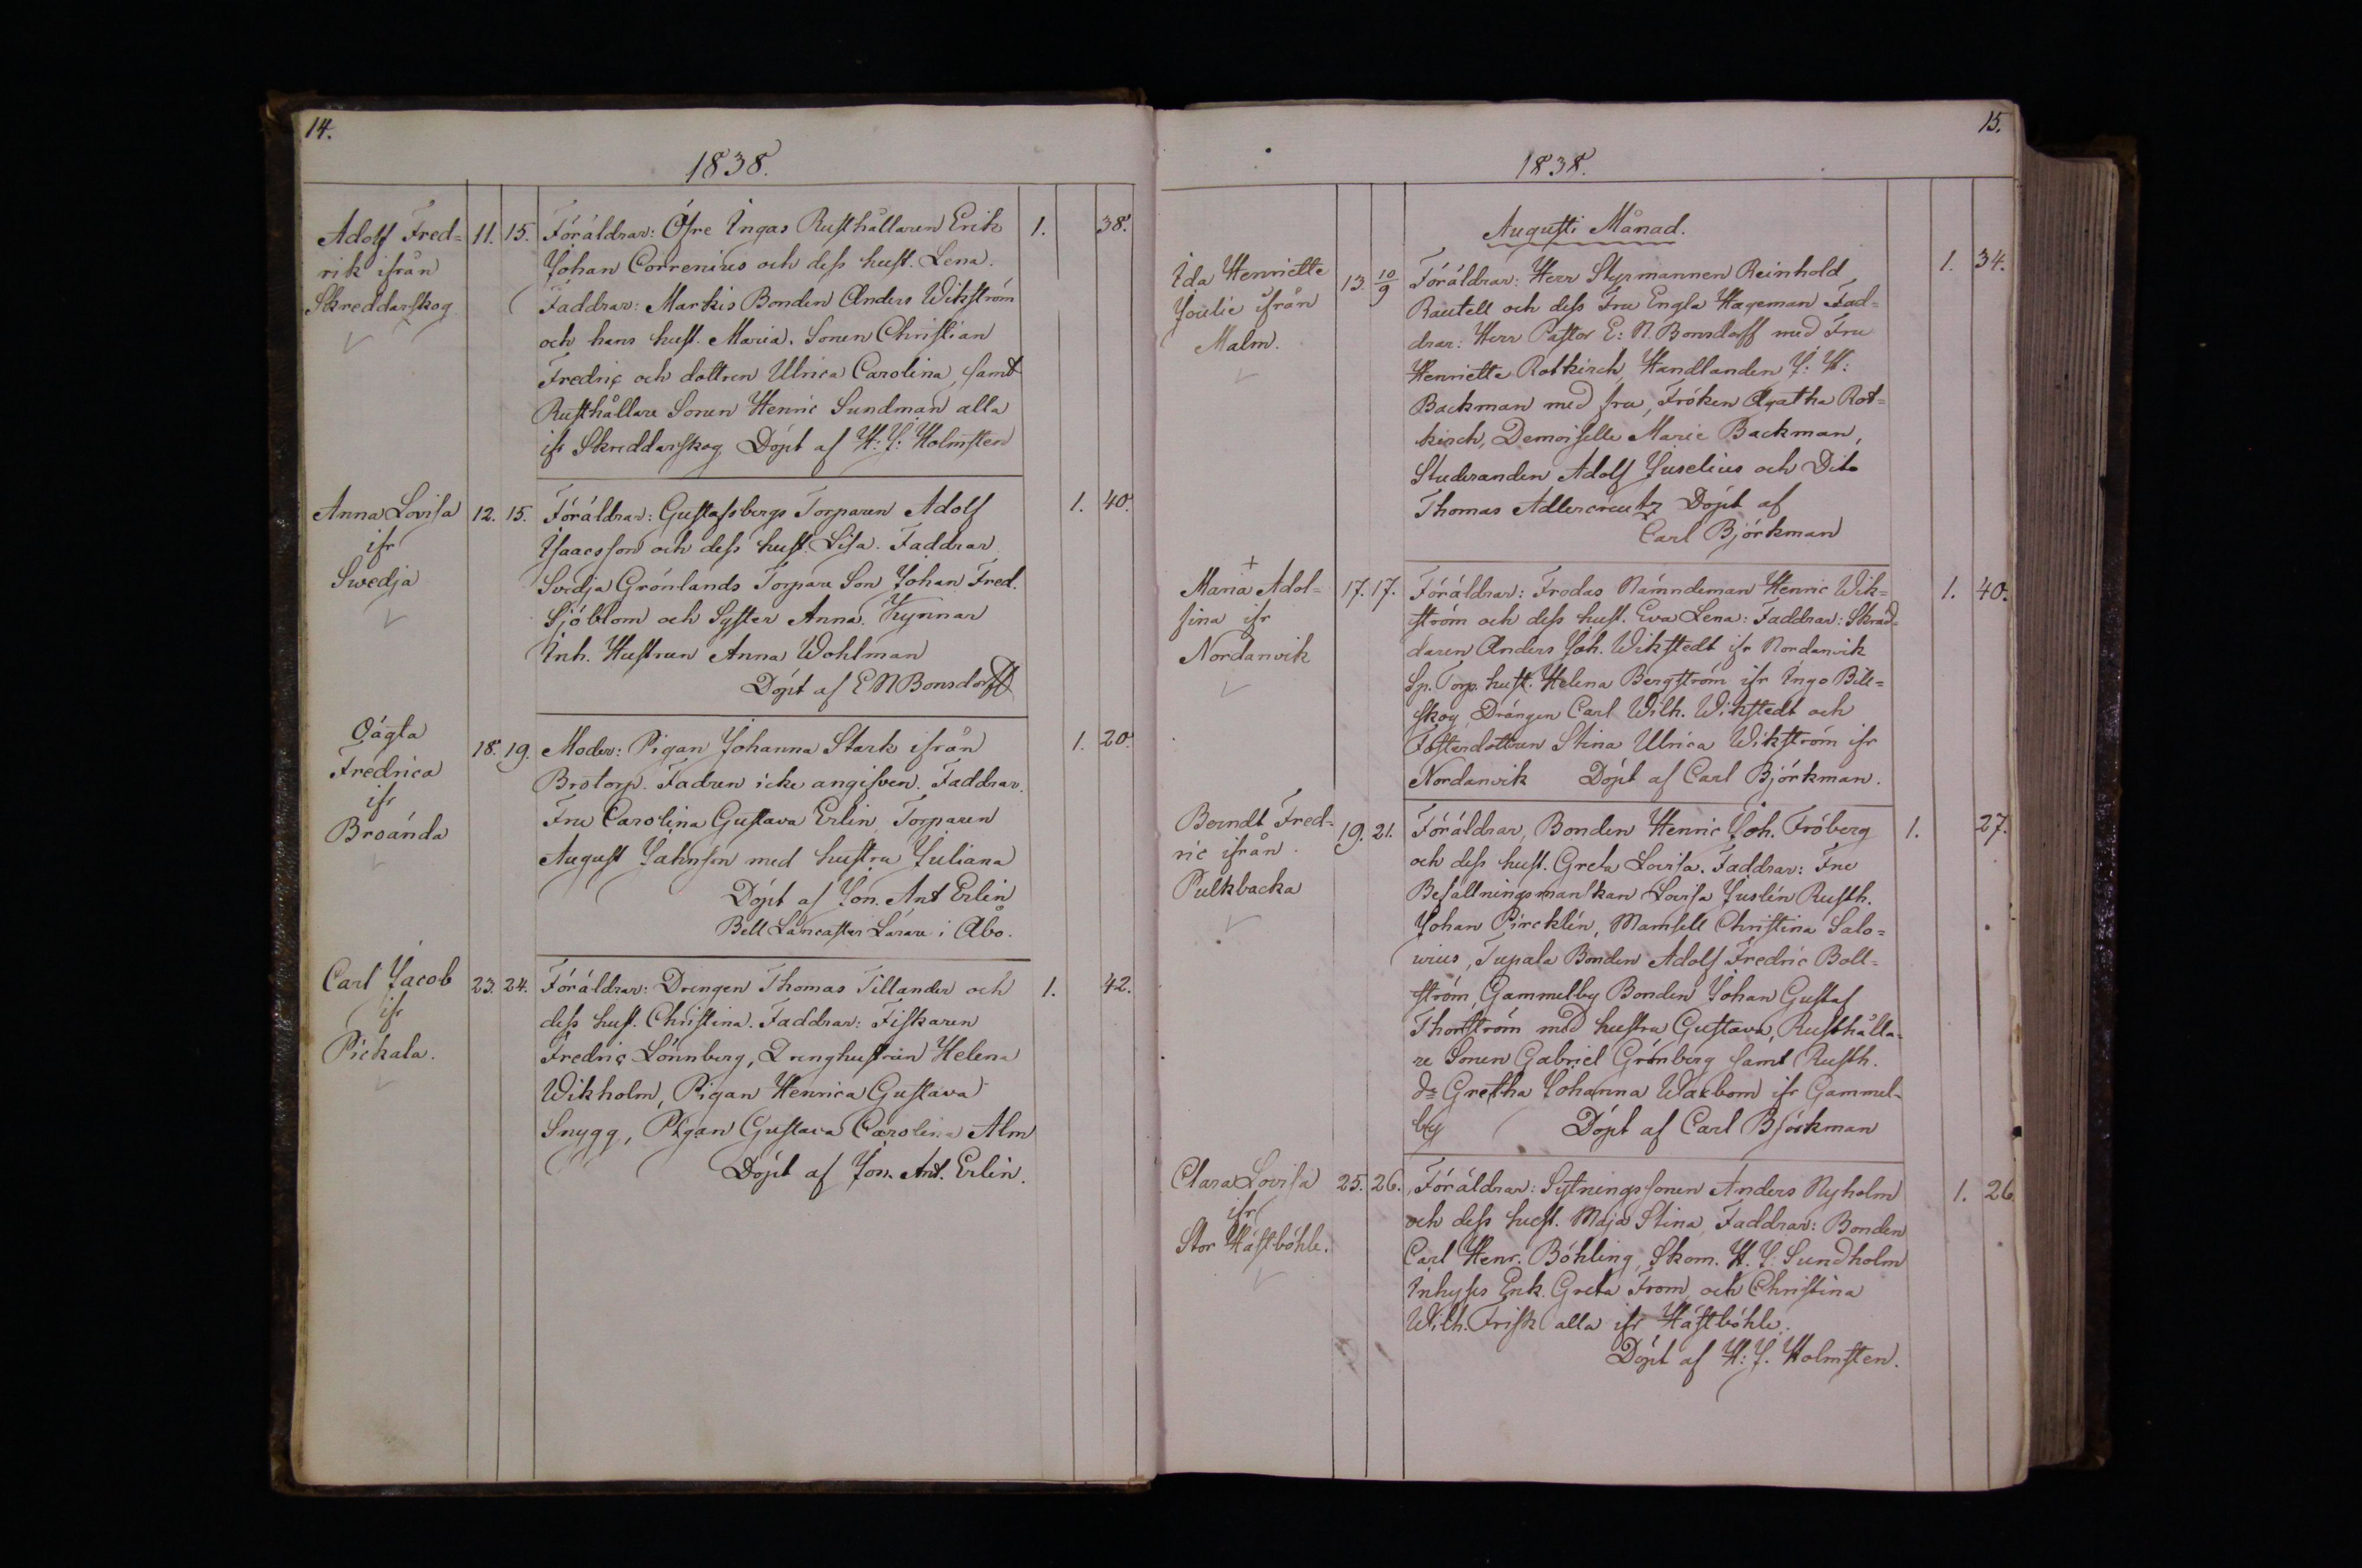 14.
1838.
Adolf Fred=
rik ifrån
Skreddarskog
11. 15.
Föräldrar: Öfre Ingas Rusthållaren Erik
Johan Correnius och dess hust. Lena.
Faddrar: Markis Bonden Anders Wikström
och hans hust. Maria. Sonen Christian
Fredric och dottren Ulrica Carolina, samt
Rusthållare Sonen Henric Sundman alla
ifr Skreddarskog Döpt af H: J: Holmsten
1. 38.
Anna Lovisa
ifr
Swedja
12. 15.
Föräldrar: Gustafsbergs Torparen Adolf
Isaacsson och dess hust. Lisa. Faddrar
Svedja Grönlands Torpare Son Johan Fred.
Sjöblom och Syster Anna. Kynnar
Inh. Hustrun Anna Wohlman
Döpt af E N Bonsdorff
1. 40.
Oägta
Fredrica
ifr
Broända
18. 19.
Moder: Pigan Johanna Stark ifrån
Brotorp. Fadren icke angifven. Faddrar.
Fru Carolina Gustava Erlin, Torparen
August Jahnson med hustru Juliana
Döpt af Jon. Ant Erlin
Bell Lancaster Lärare i Åbo.
1. 20.
Carl Jacob
ifr
Pickala.
23. 24.
Föräldrar: Drengen Thomas Tillander och
dess hust. Christina. Faddrar: Fiskaren
Fredric Lönnberg, Drenghustrun Helena
Wikholm, Pigan Henrica Gustava
Snygg, Pigan Gustava Carolina Alm
Döpt af Jon. Ant. Erlin.
1. 42.
15.
1838.
Augusti Månad.
Ida Henriette
Joulie ifrån
Malm.
13. 10/9
Föräldrar: Herr Styrmannen Reinhold
Rautell och dess Fru Engla Hageman Fad=
drar: Herr Pastor E: N. Bonsdorff med Fru
Henriette Rotkirch, Handlanden J: H:
Backman med fru, Fröken Agatha Rot=
kirch, Demoiselle Marie Backman,
Studeranden Adolf Juselius och Dito
Thomas Adlercreutz Döpt af
Carl Björkman
1. 34.
+
Maria Adol=
fina ifr
Nordanvik
17. 17.
Föräldrar: Frodas Nämndeman Henric Wik=
ström och dess hust. Eva Lena: Faddrar: Skräd=
daren Anders Joh. Wikstedt ifr Nordanvik
Sp. Torp. hust. Helena Bergström ifr Ingo Bill=
skog Drängen Carl Wilh. Wikstedt och
Fosterdottren Stina Ulrica Wikström ifr
Nordanvik Döpt af Carl Björkman.
1. 40.
Berndt Fred=
ric ifrån
Pulkbacka
19. 21.
Föräldrar, Bonden Henric Joh. Fröberg
och dess hust. Greta Lovisa. Faddrar: Fru
Befallningsmanskan Lovisa Juslén Rusth.
Johan Pircklén, Mamsell Christina Salo=
vius, Tupala Bonden Adolf Fredric Boll=
ström, Gammelby Bonden Johan Gustaf
Thorström med hustru Gustava, Rusthålla=
re Sonen Gabriel Grönberg samt Rusth.
dr Gretha Johanna Waxbom ifr Gammel=
by Döpt af Carl Björkman
1. 27.
Clara Lovisa
ifr
Stor Hästböhle.
25. 26.
Föräldrar: Sytningssonen Anders Nyholm
och dess hust. Maja Stina, Faddrar: Bonden
Carl Henr. Böhling, Skom. H. J. Sundholm
Inhyses Enk. Greta From, och Christina
Wilh. Frisk alla ifr Hästböhle.
Döpt af H: J. Holmsten.
1. 26